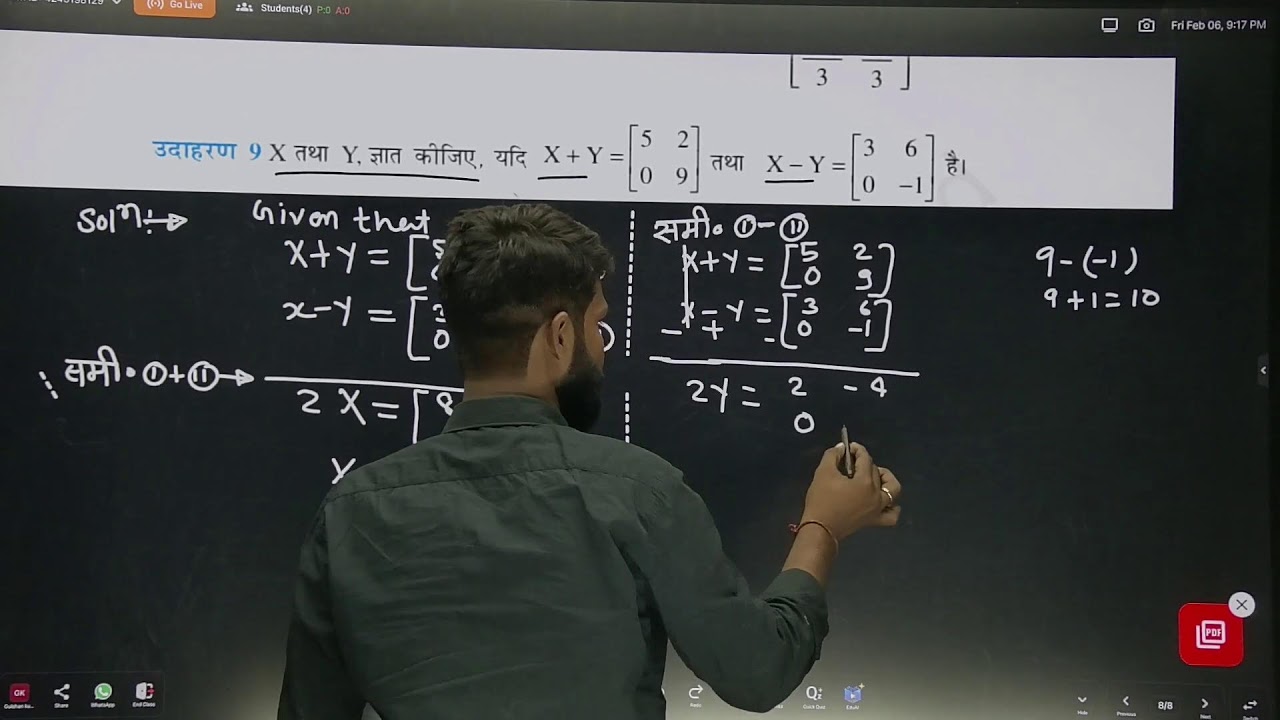 Go Live
Students(4) P:0 A:0
Fri Feb 06, 9:17 PM
3 3
उदाहरण 9 X तथा Y, ज्ञात कीजिए, यदि X + Y = [5 2 तथा X – Y = [3 6 है।
0 9] 0 –1]
Solⁿ:→ Given that
X+Y = [5
x-Y = [3
0
समी० ①+⑪→
2X = [8
समी० ①-⑪
X+Y = [5 2
0 9]
X - Y = [3 6
0 -1]
- + -
2Y = 2 -4
0
9-(-1)
9+1=10
PDF
GK Share WhatsApp End Class
Quick Quiz EduAI
Hide Previous 8/8 Next Switch